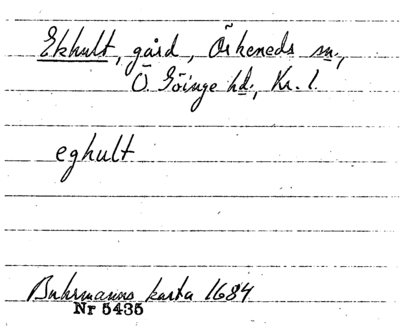 Ekhult, gård, Örkeneds sn.,
Ö. Göinge hd., Kr. l.
eghult
Buhrmanns karta 1684
Nr 5435